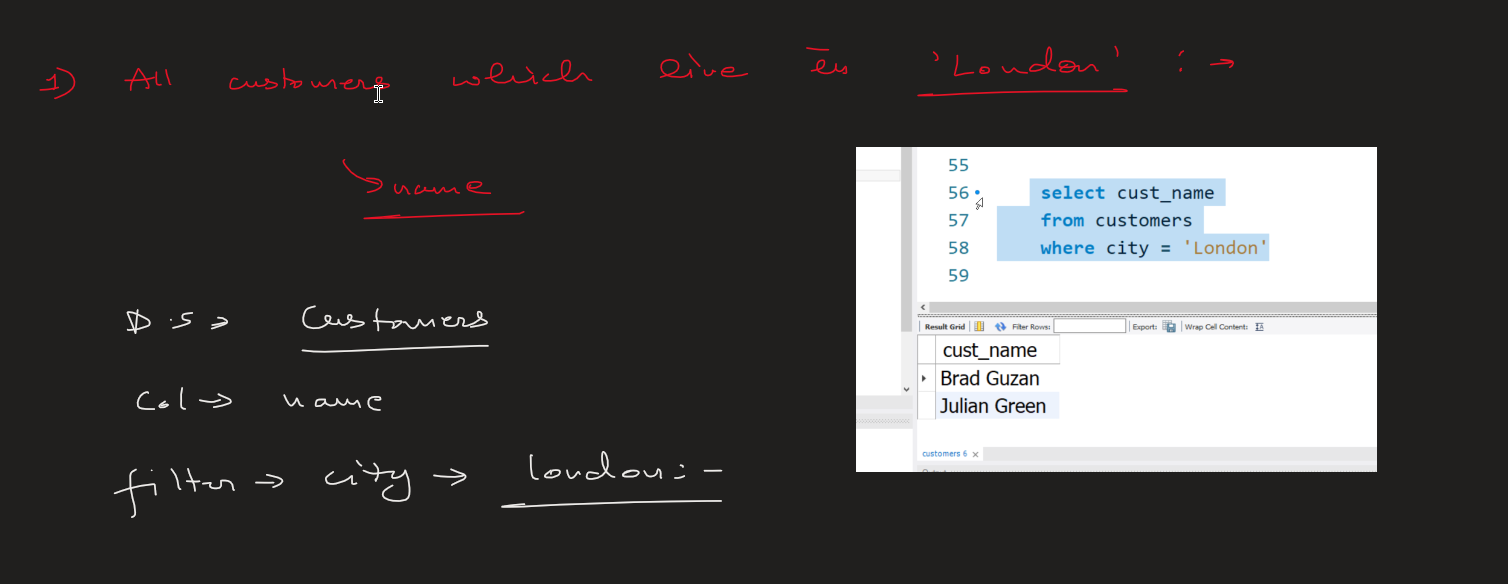 1) All customers which live in 'London' : →
↳ name
D.S → Customers
Col → name
filter → city → london: -
55
56 select cust_name
57 from customers
58 where city = 'London'
59
Result Grid Filter Rows: Export: Wrap Cell Content:
cust_name
Brad Guzan
Julian Green
customers 6 ×